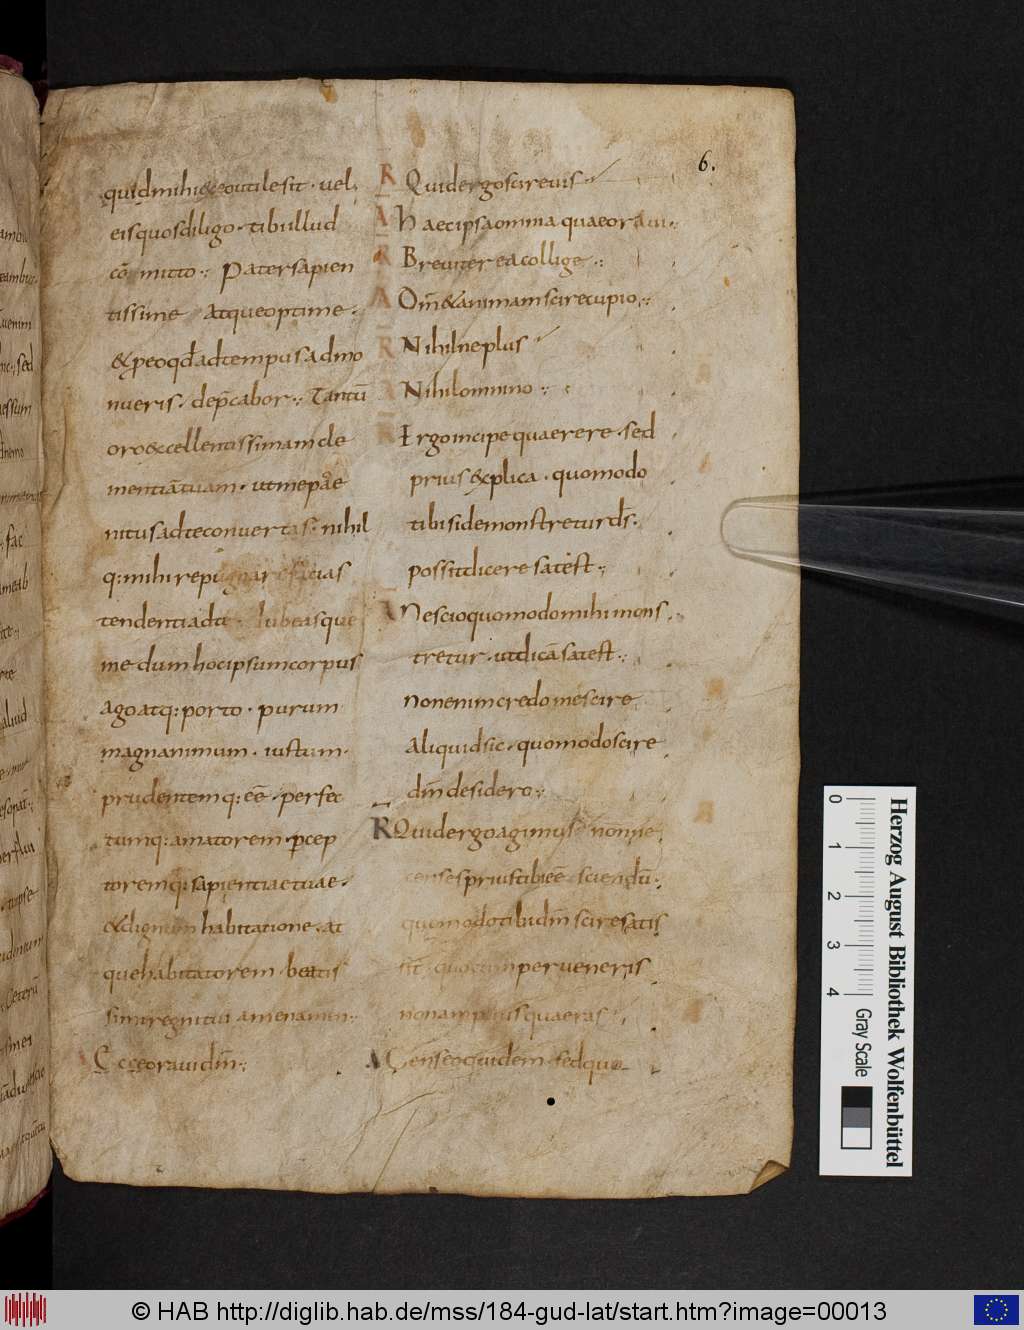 6.
quidmihi&eoutilesit · uel
eisquosdiligo · tibiillud
cō mitto :· Patersapien
tissime atqueoptime ·
&ꝑeoqđadtempusadmo
nueris · dep̄cabor :· Tantū
oro&cellentissimamcle
mentiātuam · utmepæ
nitusadteconuertas · nihil
q:mihirepugnarefacias
tendentiadte · Iubeasque
me dum hocipsumcorpus
ago atq: porto · purum
magnanimum · iustum ·
prudentemq: eē · perfec
tumq: amatorem · ꝑcep
toremq: sapientiaetuae ·
&dignum habitatione · at
quehabitatorem · beatis
simiregnitui amenamen :·
Ecceorauidm̄ :·
R Quidergoscireuis
A Haecipsaomnia quaeoraui :·
R Breuiter eacollige :·
A Dm̄&animamscirecupio :·
R Nihilneplus
A Nihilomnino :·
R Ergoincipe quaerere · sed
prius&plica · quomodo
tibisidemonstreturds̄ ·
possitdicere satest :·
A Nescioquomodomihimons
tretur · utdicā satest :·
nonenimcredo mescire
aliquidsic · quomodoscire
dm̄ desidero :·
R Quidergoagimus nonne
censespriustibieē sciendū ·
quomodotibidm̄ sciresatis
sit quocumperueneris
nonampliusquaeras
A Censeoquidem · sedquo
Herzog August Bibliothek Wolfenbüttel
0 1 2 3 4
Gray Scale
© HAB http://diglib.hab.de/mss/184-gud-lat/start.htm?image=00013